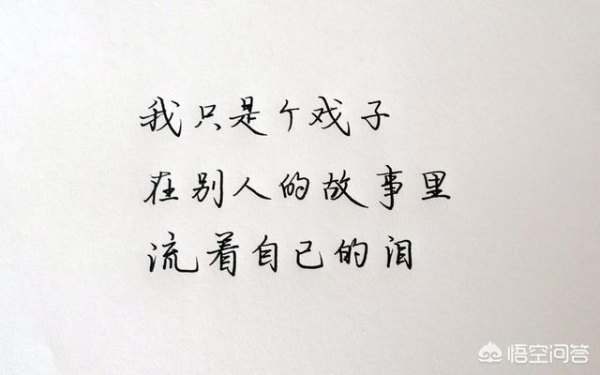 我只是个戏子
在别人的故事里
流着自己的泪
悟空问答